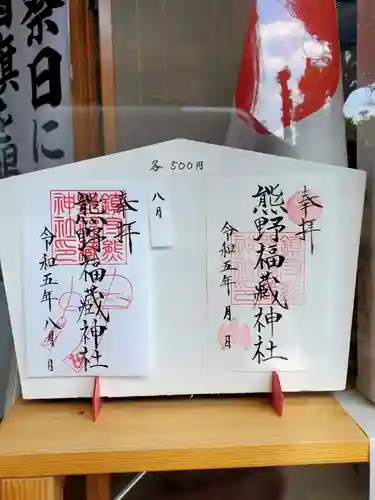 祭日に
旗を
各500円
八月
奉拝
熊野福藏神社
令和五年八月 日
奉拝
熊野福藏神社
令和五年 月 日